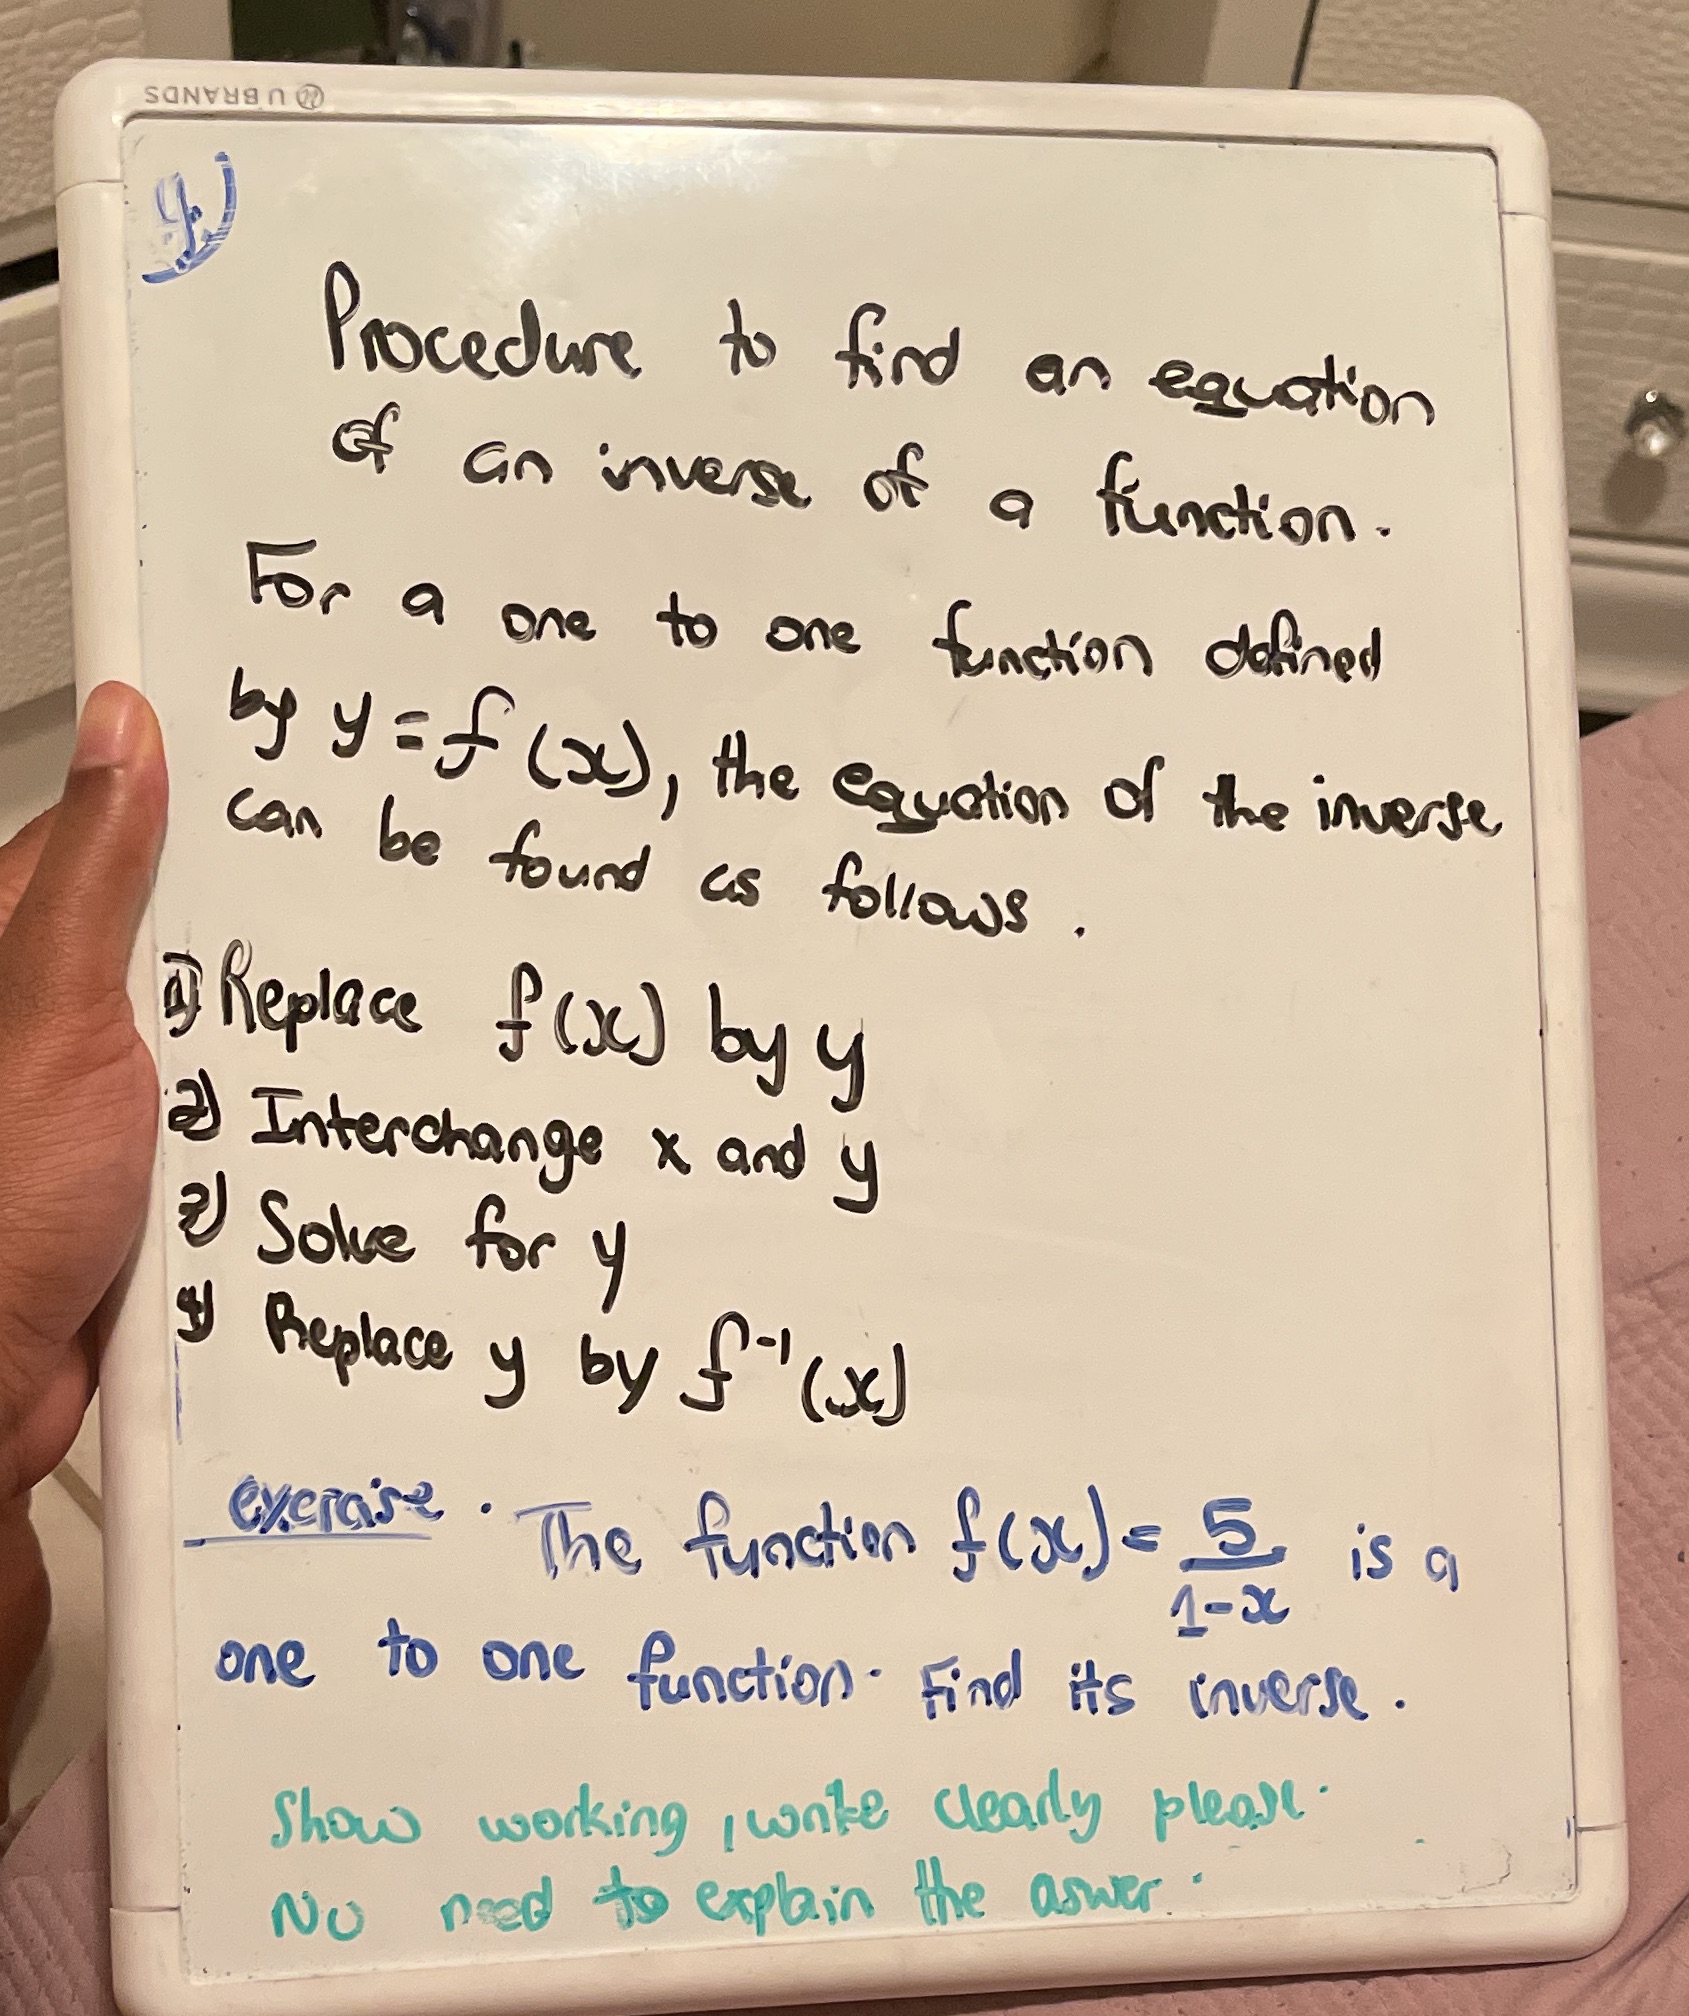 U BRANDS
Procedure to find an equation
of an inverse of a function.
For a one to one function defined
by y = f(x), the equation of the inverse
can be found as follows.
1) Replace f(x) by y
2) Interchange x and y
3) Solve for y
4) Replace y by f⁻¹(x)
exercise. The function f(x) = 5/(1-x) is a
one to one function. Find its inverse.
Show working, write clearly please.
No need to explain the aswer.